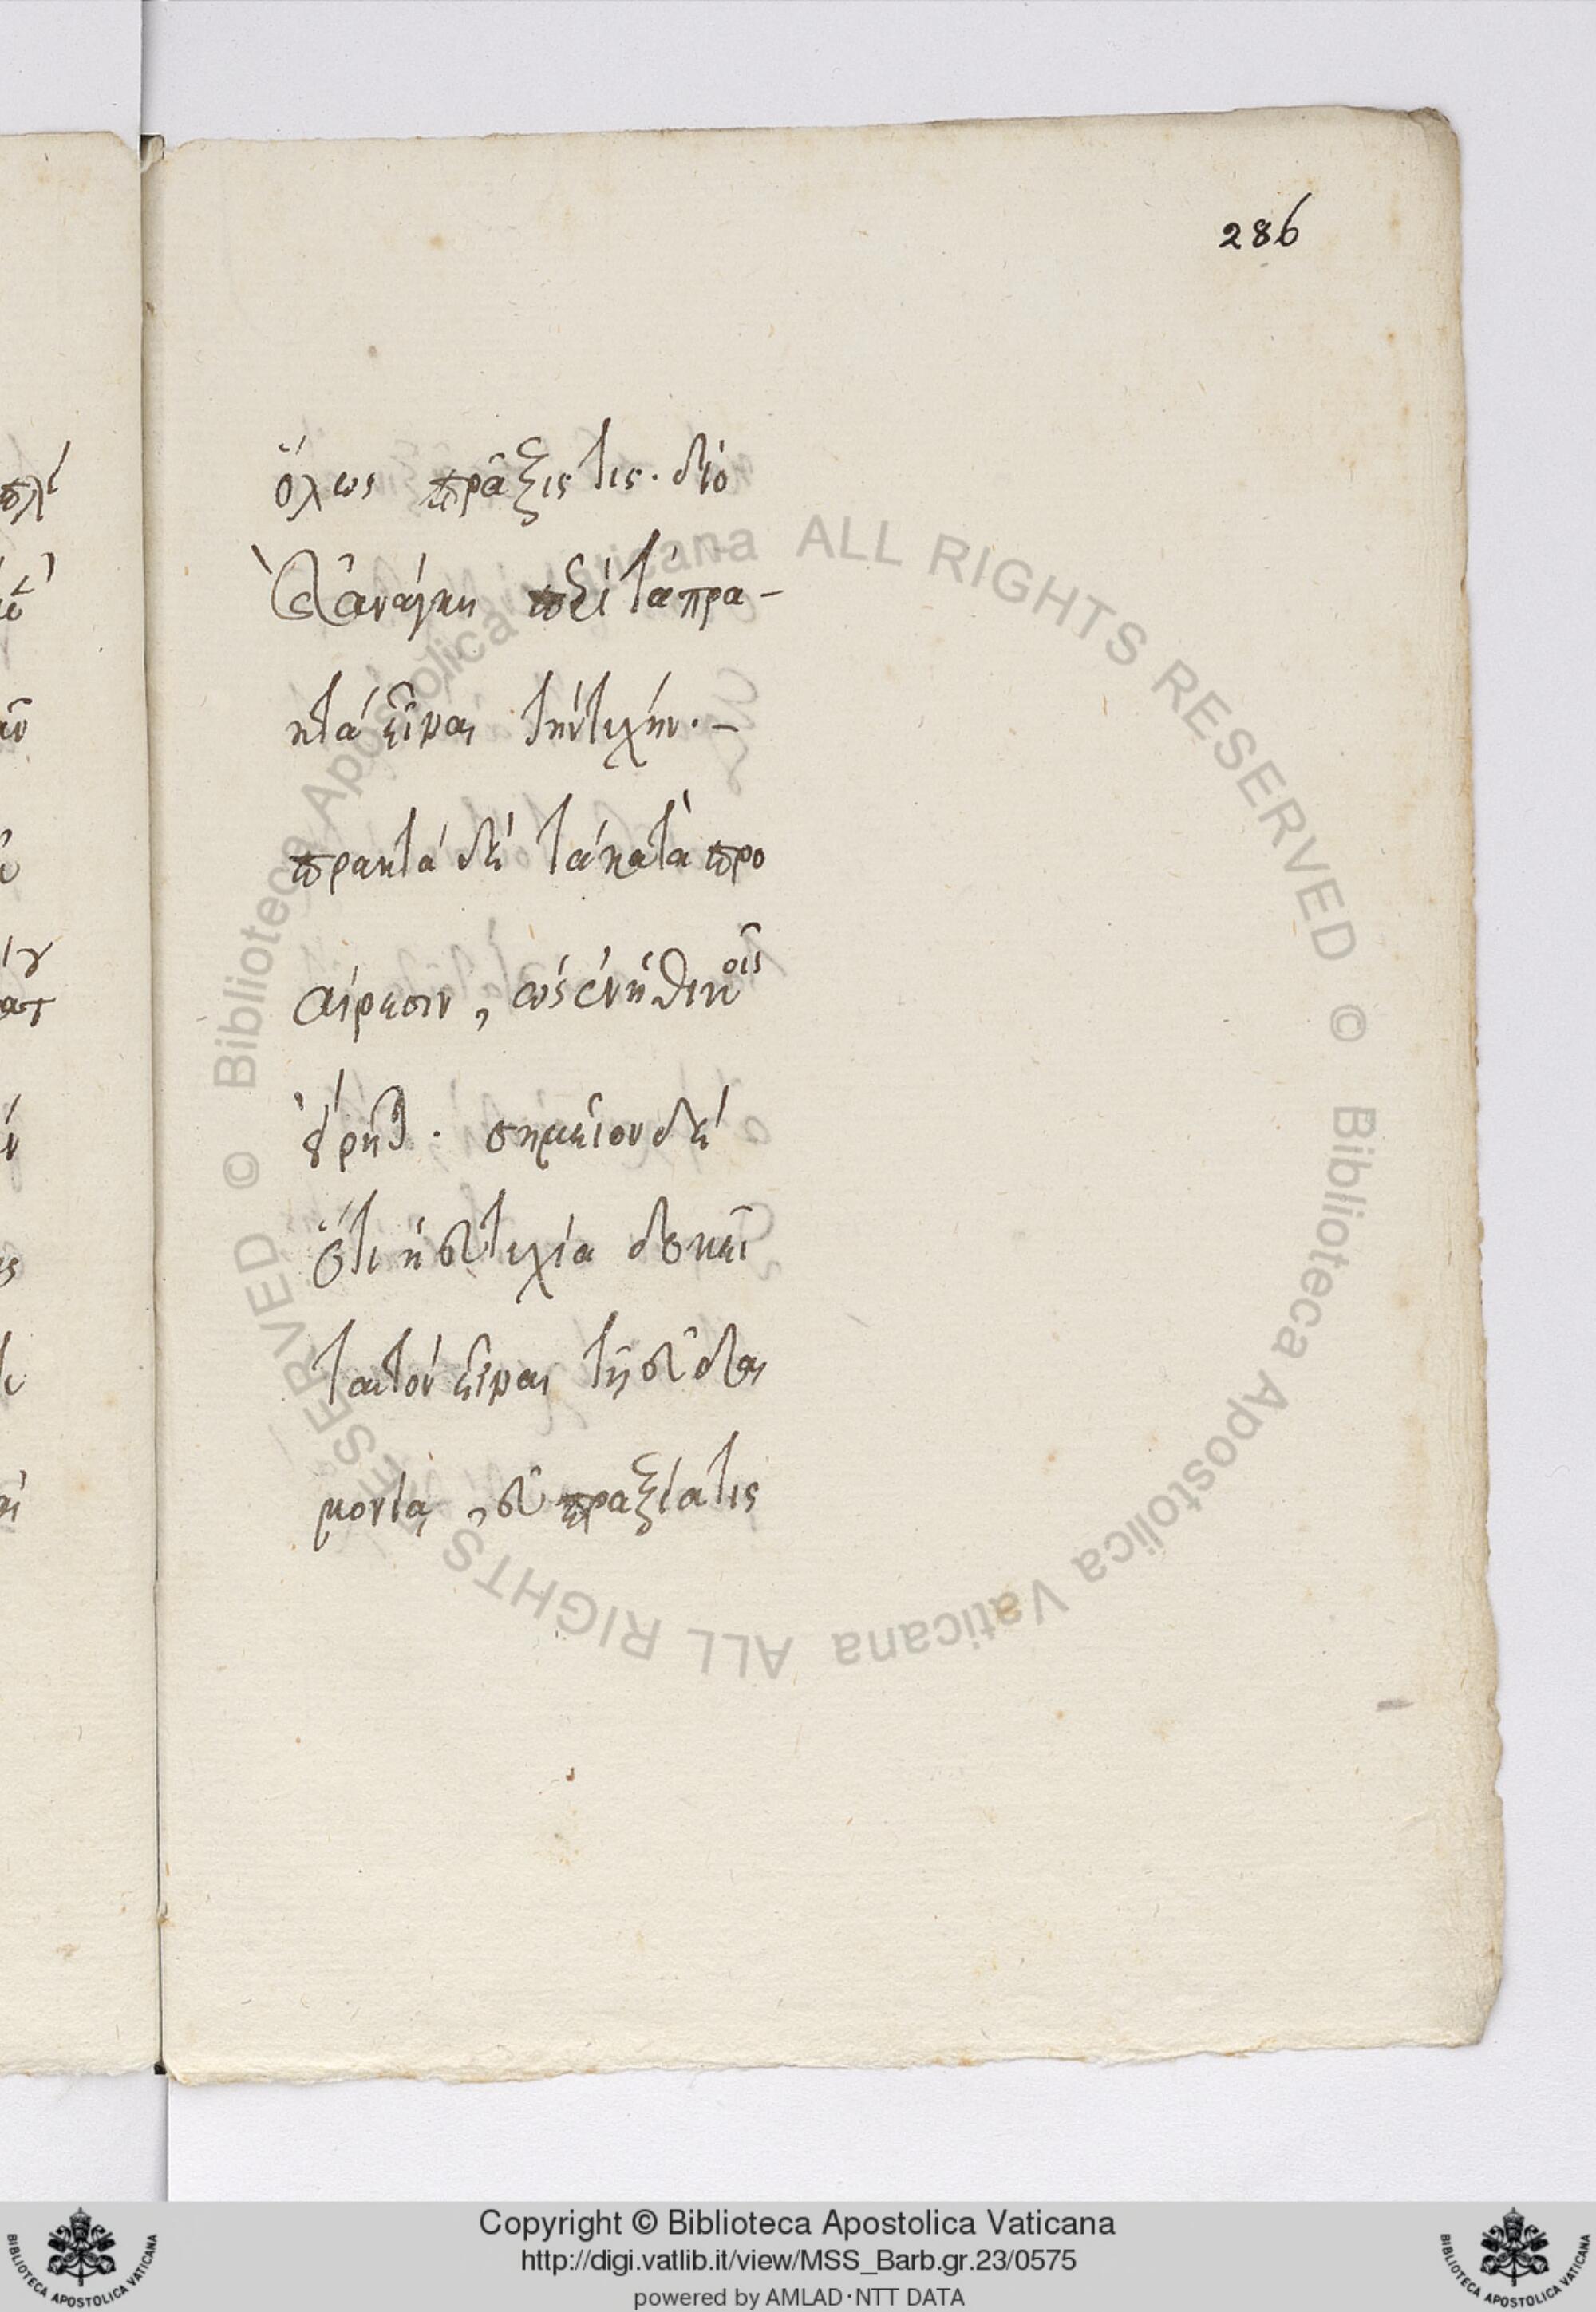 286
ὅλως πρᾶξίς τις. διὸ
καὶ ἀνάγκη περὶ τὰ πρα-
κτὰ εἶναι τὴν τύχην. –
πρακτὰ δὲ τὰ κατὰ προ
αίρεσιν, ὡς ἐν ἠθικοῖς
εἴρηται. σημεῖον δὲ
ὅτι ἡ εὐτυχία δοκεῖ
ταυτὸν εἶναι τῇ εὐδαι
μονίᾳ, εὐπραξία τις
Copyright © Biblioteca Apostolica Vaticana
http://digi.vatlib.it/view/MSS_Barb.gr.23/0575
powered by AMLAD·NTT DATA
© Biblioteca Apostolica Vaticana ALL RIGHTS RESERVED © Biblioteca Apostolica Vaticana ALL RIGHTS RESERVED
BIBLIOTECA APOSTOLICA VATICANA
BIBLIOTECA APOSTOLICA VATICANA